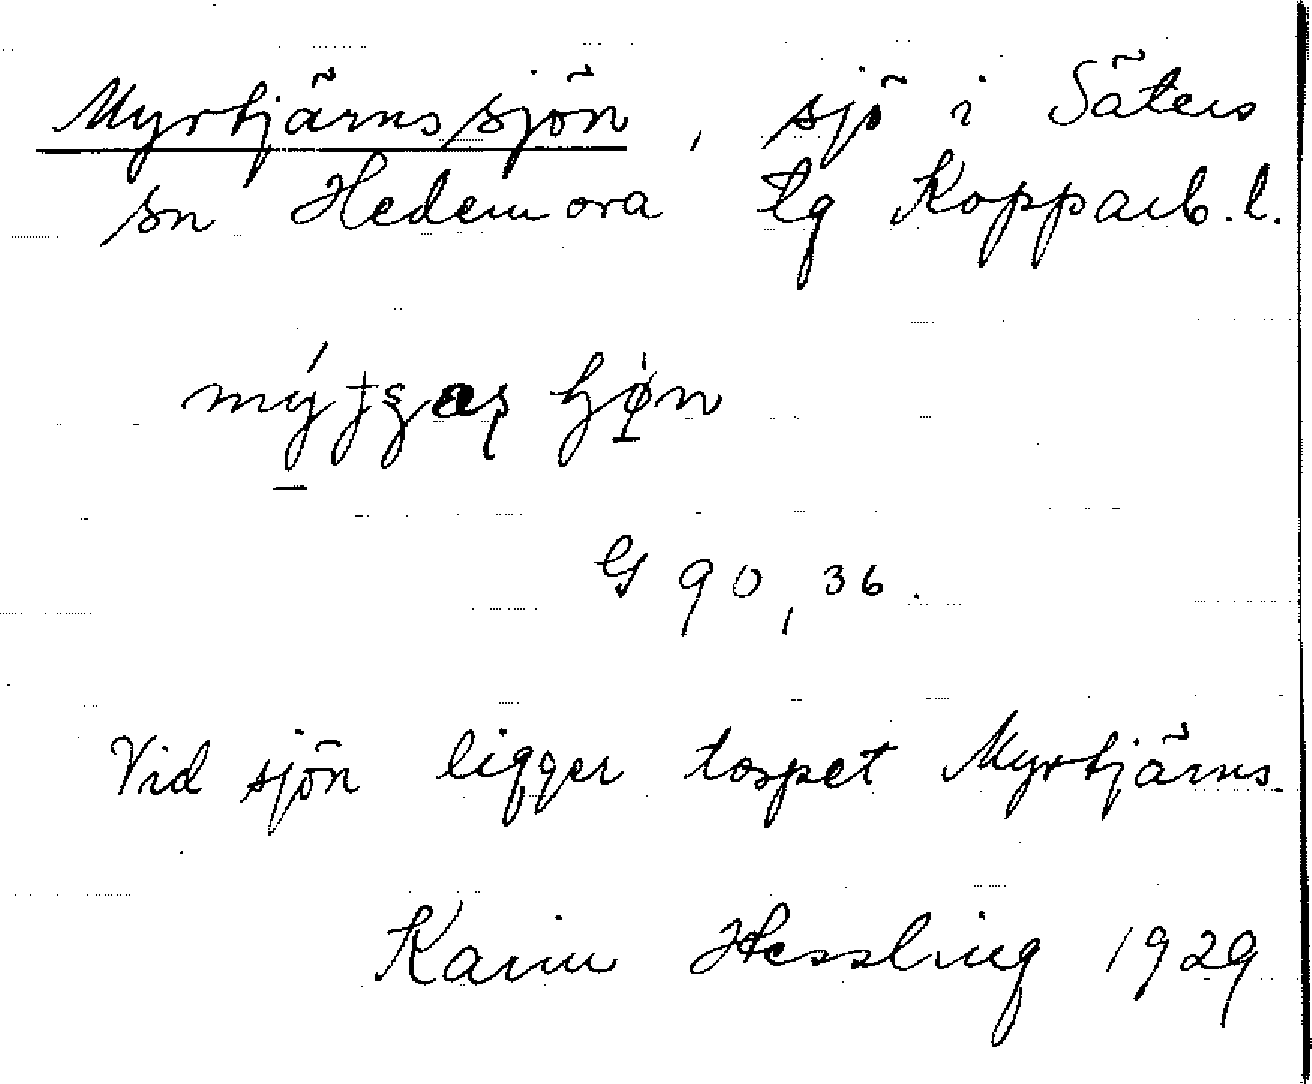 Myrtjärnssjön, sjö i Säters
sn Hedemora tg Kopparb. l.
G 90, 36.
Vid sjön ligger torpet Myrtjärns.
Karin Hessling 1929